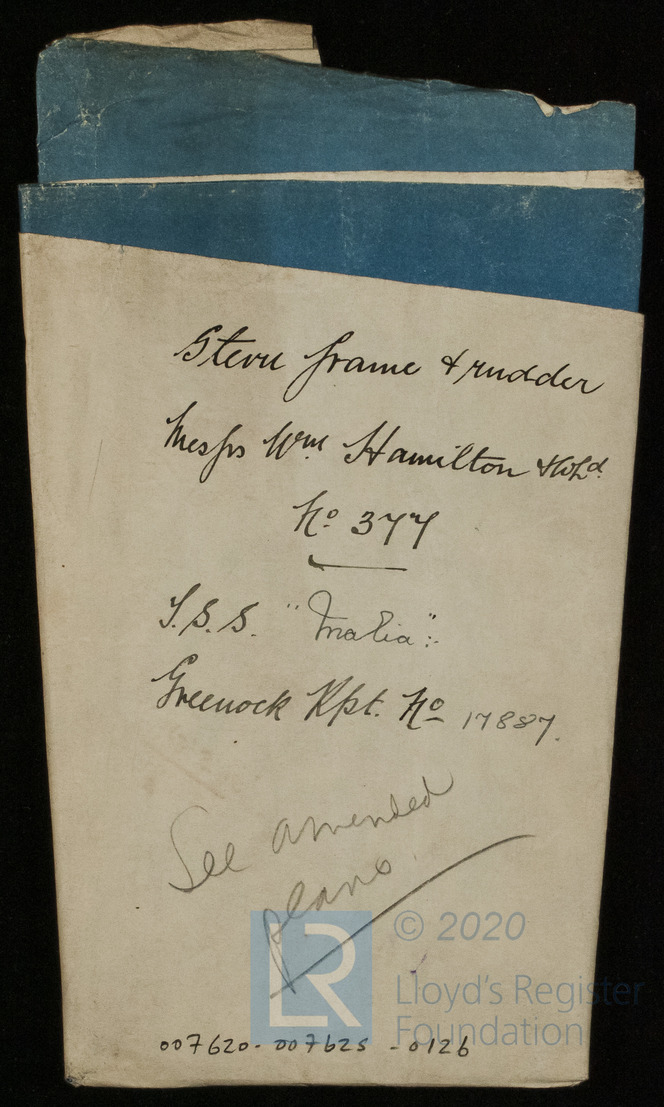 Stern frame & rudder
Messrs Wm Hamilton & Co Ld.
No 377
S.S.S. "Malia":
Greenock Rpt. No 17887.
See amended
plans
LR
© 2020
Lloyd's Register
Foundation
007620-007625-0126